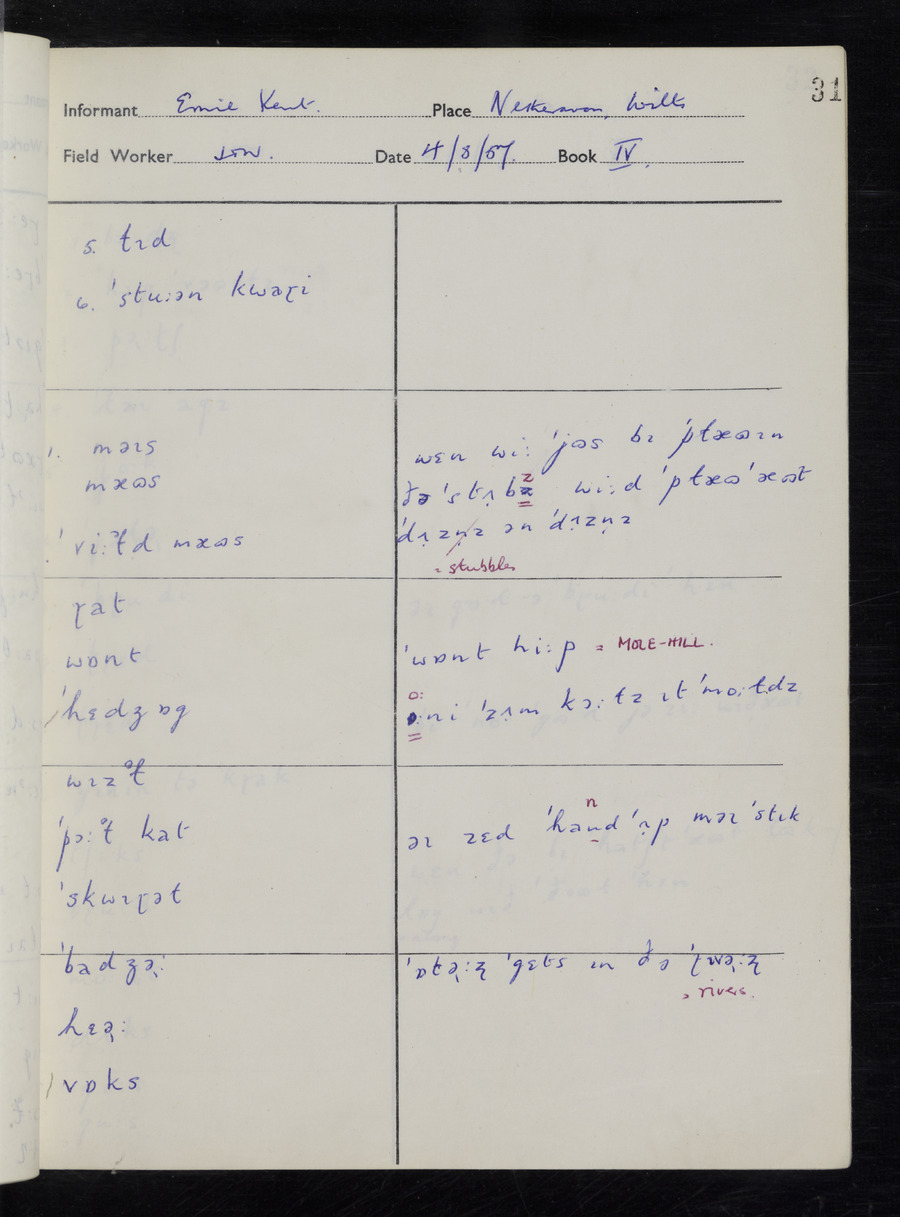 31
Informant Ernie Kent. Place Netheravon, Wilts
Field Worker JTW. Date 4/8/57. Book IV.
5. tɪd
6. ˈstuːən kwɒɽi
məɪs
mæʊs
ˈviːɫd mæʊs
wɛn wiː ˈjʊs bɪ ˈplæʊɪn
ðə ˈstʌbɫz wiːd ˈplæʊ ˈæʊt
= stubbles
ɽat
wɒnt
ˈhɛdʒɒg
ˈwɒnt hiːp = MOLE-HILL.
oːni ˈzʌm kɔːɫz ɪt ˈmoːɫdz
wɪzɫ
ˈpɔːɫ kat
ˈskwɪɽəɫ
əɪ zɛd ˈhand ˈʌp məɪ ˈstɪk
n
ˈbadʒəː
hɛəː
vɒks
= rivers.